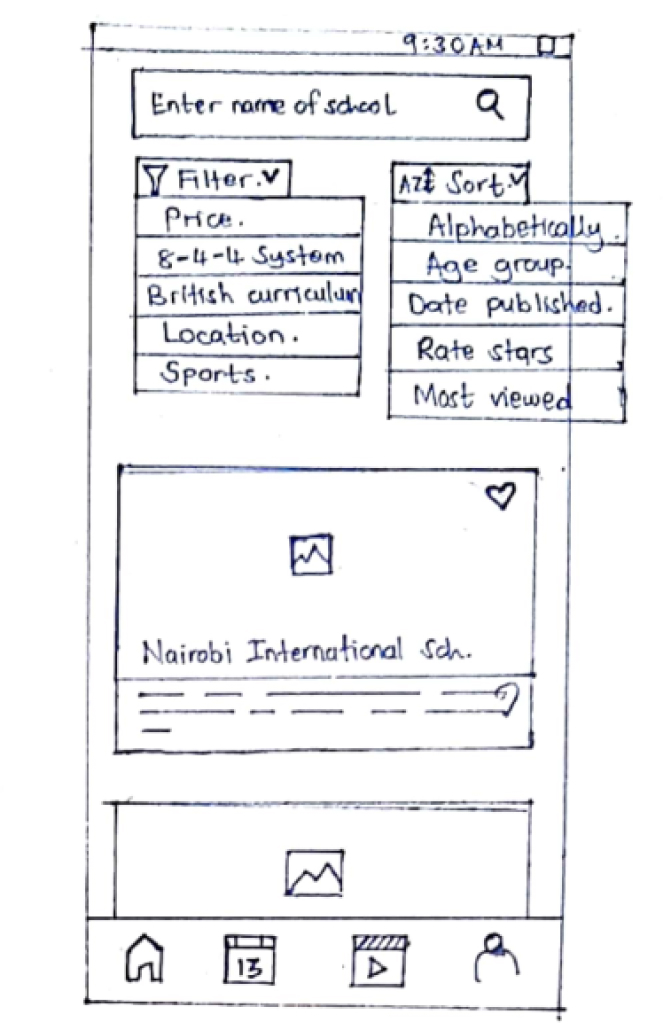 9:30AM
Enter name of school
Filter.
Price.
8-4-4 System
British curriculum
Location.
Sports.
AZ Sort.
Alphabetically.
Age group.
Date published.
Rate stars
Most viewed
Nairobi International Sch.
13